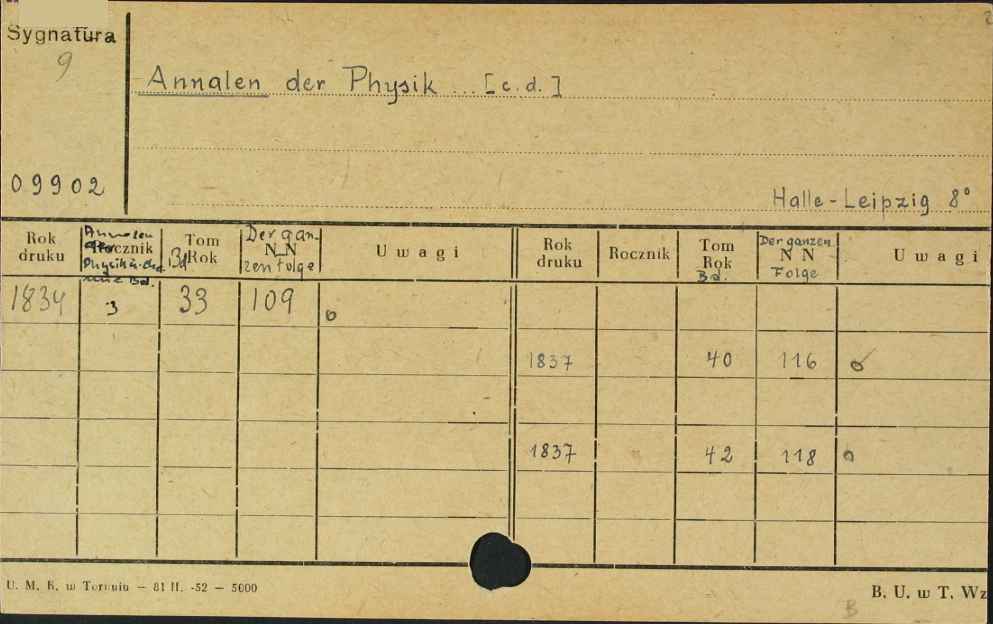 Sygnatura
9
Annalen der Physik ... [c.d.]
09902
Halle-Leipzig 8°
Rok druku Annalen Rocznik Physik u. Bd. Tom Rok Bd Der ganzen N N Folge Uwagi Rok druku Rocznik Tom Rok Bd. Der ganzen N N Folge Uwagi
1834 3 33 109 o
1837 40 116 o
1837 42 118 o
U. M. K. w Toruniu — 81 II. -52 — 5000
B. U. w T. Wz
B